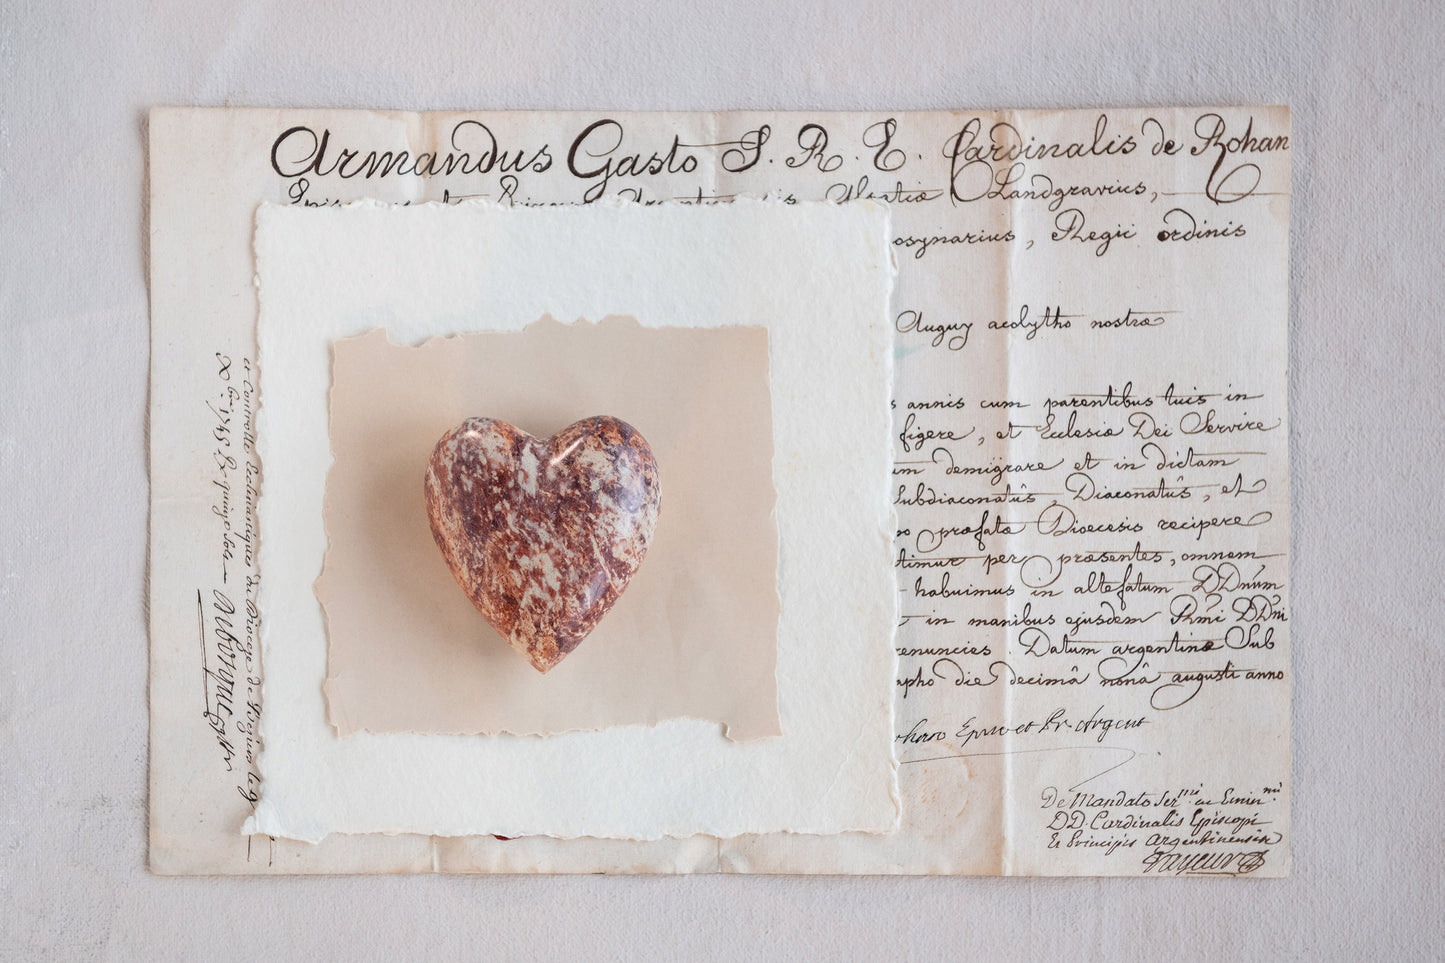 Armandus Gasto S. R. E. Cardinalis de Rohan
Alsatiæ Landgravius,
osynarius, Regii ordinis
Auguy acolytho nostræ
s annis cum parentibus tuis in
figere, et Ecclesiæ Dei Servire
um demigrare et in dictam
Subdiaconatûs, Diaconatûs, et
præfatæ Dioecesis recipere
timur per præsentes, omnem
habuimus in altefatum DDnum
in manibus ejusdem Rmi DDni
renuncies. Datum argentinæ Sub
apho die decimâ nonâ augusti anno
et Pr. Argent
De Mandato Ser.mi ac Emin.mi
DD. Cardinalis Episcopi
Et Principis Argentinensis
et Controlle Ecclesiastiques du Diocese de le 9
Xbre 1745